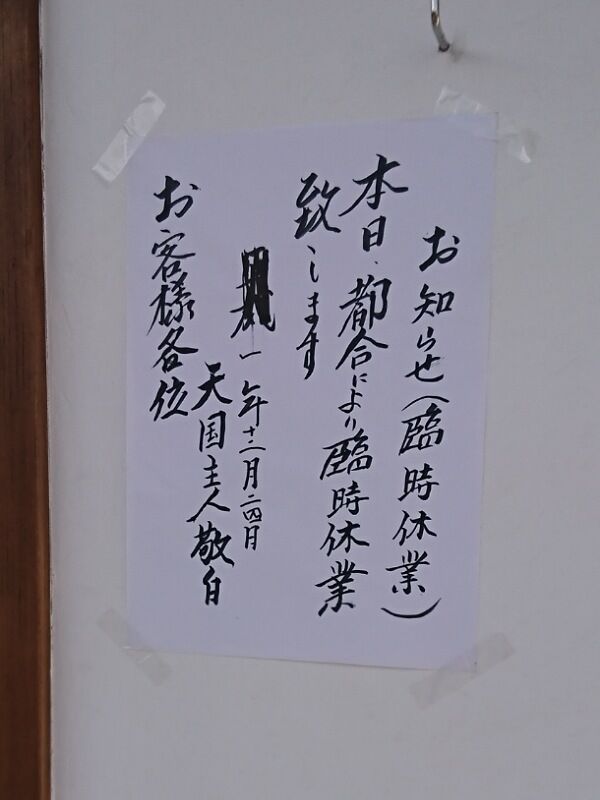 お知らせ（臨時休業）
本日、都合により臨時休業
致します
一年十二月二四日
天国主人敬白
お客様各位